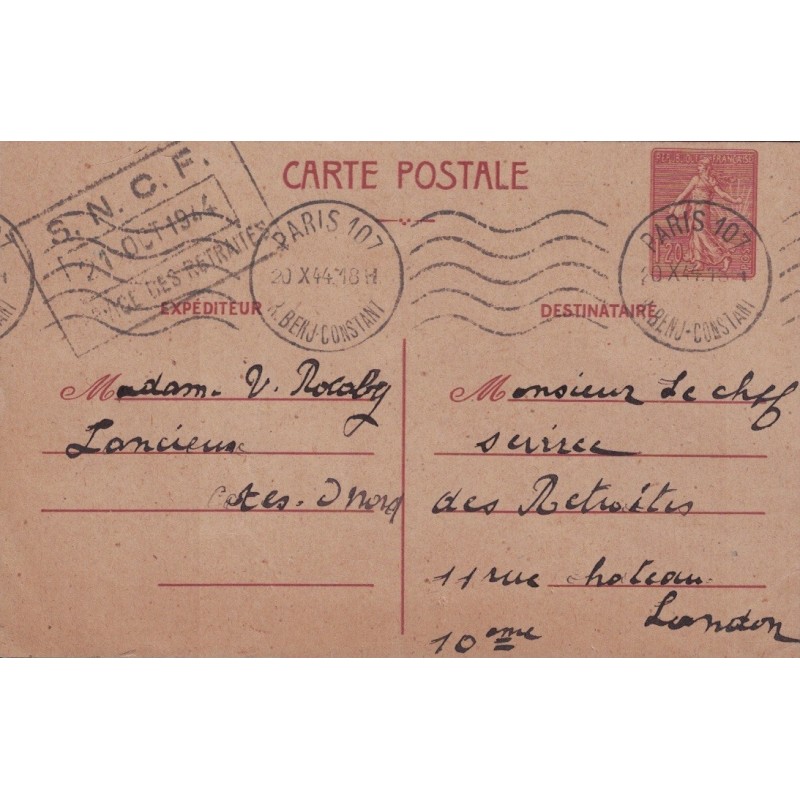 CARTE POSTALE
REPUBLIQUE FRANÇAISE
1F20
S. N. C. F.
21 OCT 1944
DES RETRAITES
PARIS 107
20 X 44. 18 H
R. BENJ-CONSTANT
PARIS 107
20 X 44. 18 H
R. BENJ-CONSTANT
EXPÉDITEUR
Madam. V. Rocaby
Lancieux
Cotes. D nord
DESTINATAIRE
Monsieur Le cheff
servicee
des Retraites
11 rue chateau
Landon
10 eme